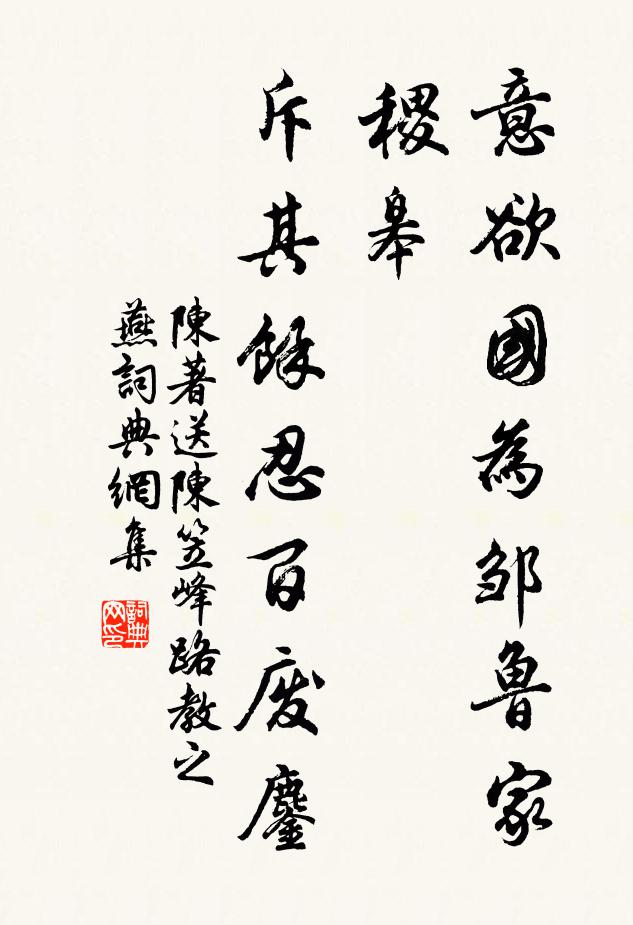 意欲國為邹魯家
稷皋
斥其餘忍百废鏖
陳著送陳笠峰路教之
燕詞典網集
詞典网印